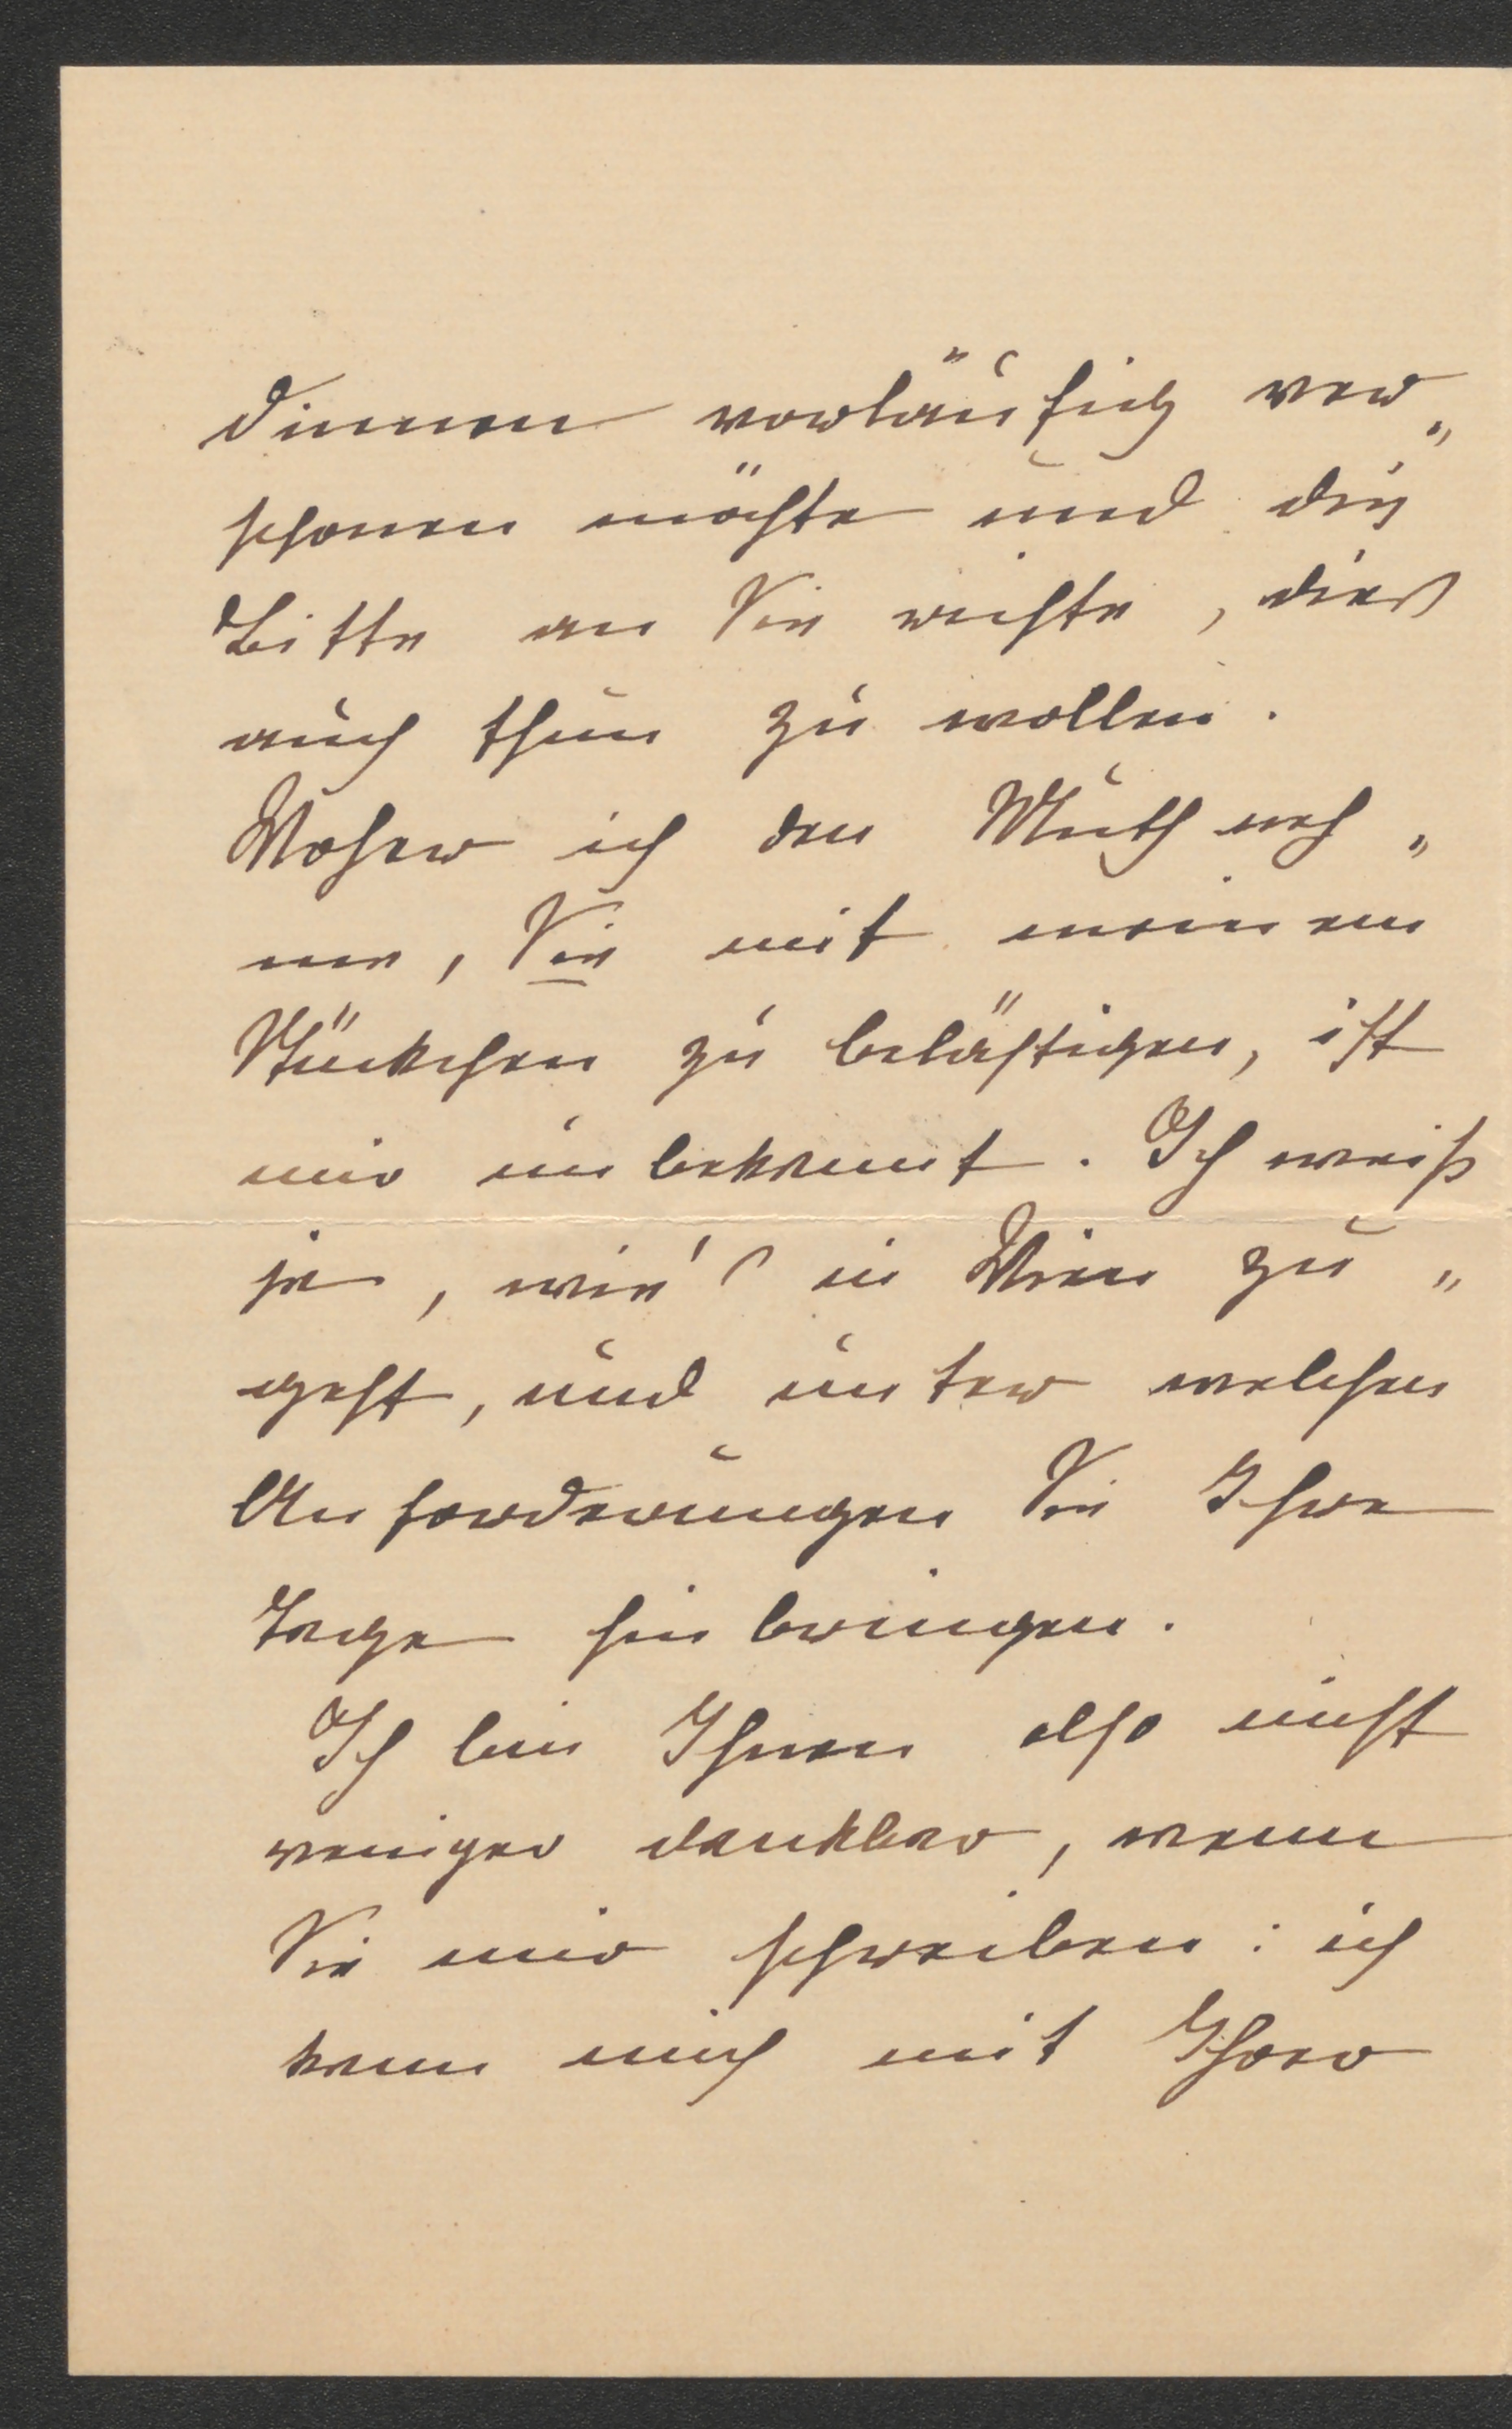 dinnen vorläufig ver„
schonen möchte und die
Bitte an Sie richte, dieß
auch thun zu wollen.
Woher ich den Muth neh„
me, Sie mit meinem
Stückchen zu belästigen, ist
mir unbekannt. Ich weiß
ja, wie's in Wien zu„
geht, und unter welchen
Anforderungen Sie Ihre
Tage hinbringen.
Ich bin Ihnen also nicht
weniger dankbar, wenn
Sie mir schreiben: ich
kann mich mit Ihrer